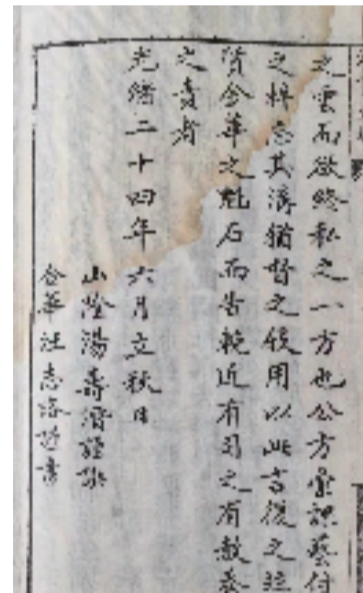 之雲而欲終私之一方也公方彙課藝付
之梓忘其譾猶督之役用以此言復之
貨金華之觥石而告輓近有司之有教養
之責者
光緒二十四年六月立秋日
山陰湯壽潛謹
金華汪志洛書